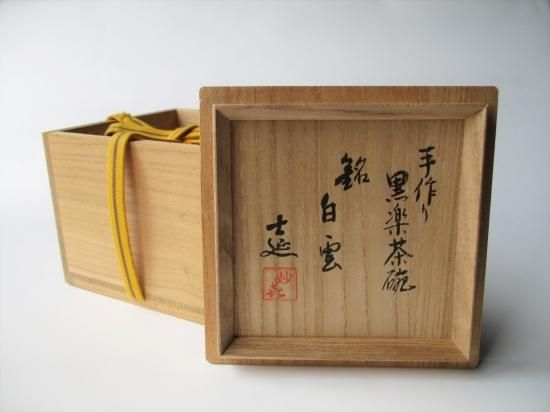 手作り
黒楽茶碗
銘 白雲